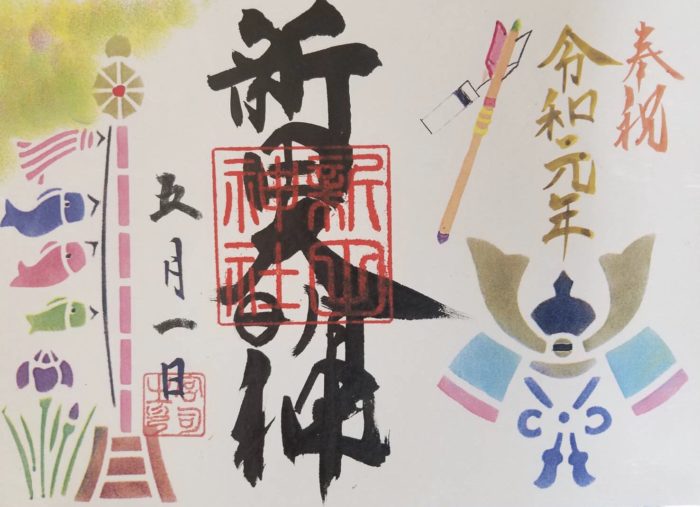 奉祝
令和元年
新田大明神
新田神社
五月一日